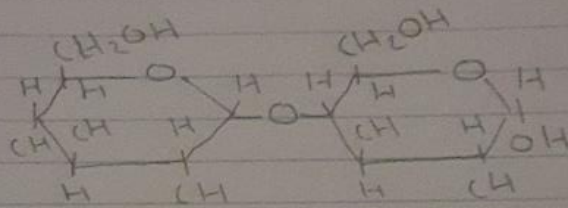 CH₂OH CH₂OH
H H O H H H O H
CH CH H O CH H OH
H CH H CH